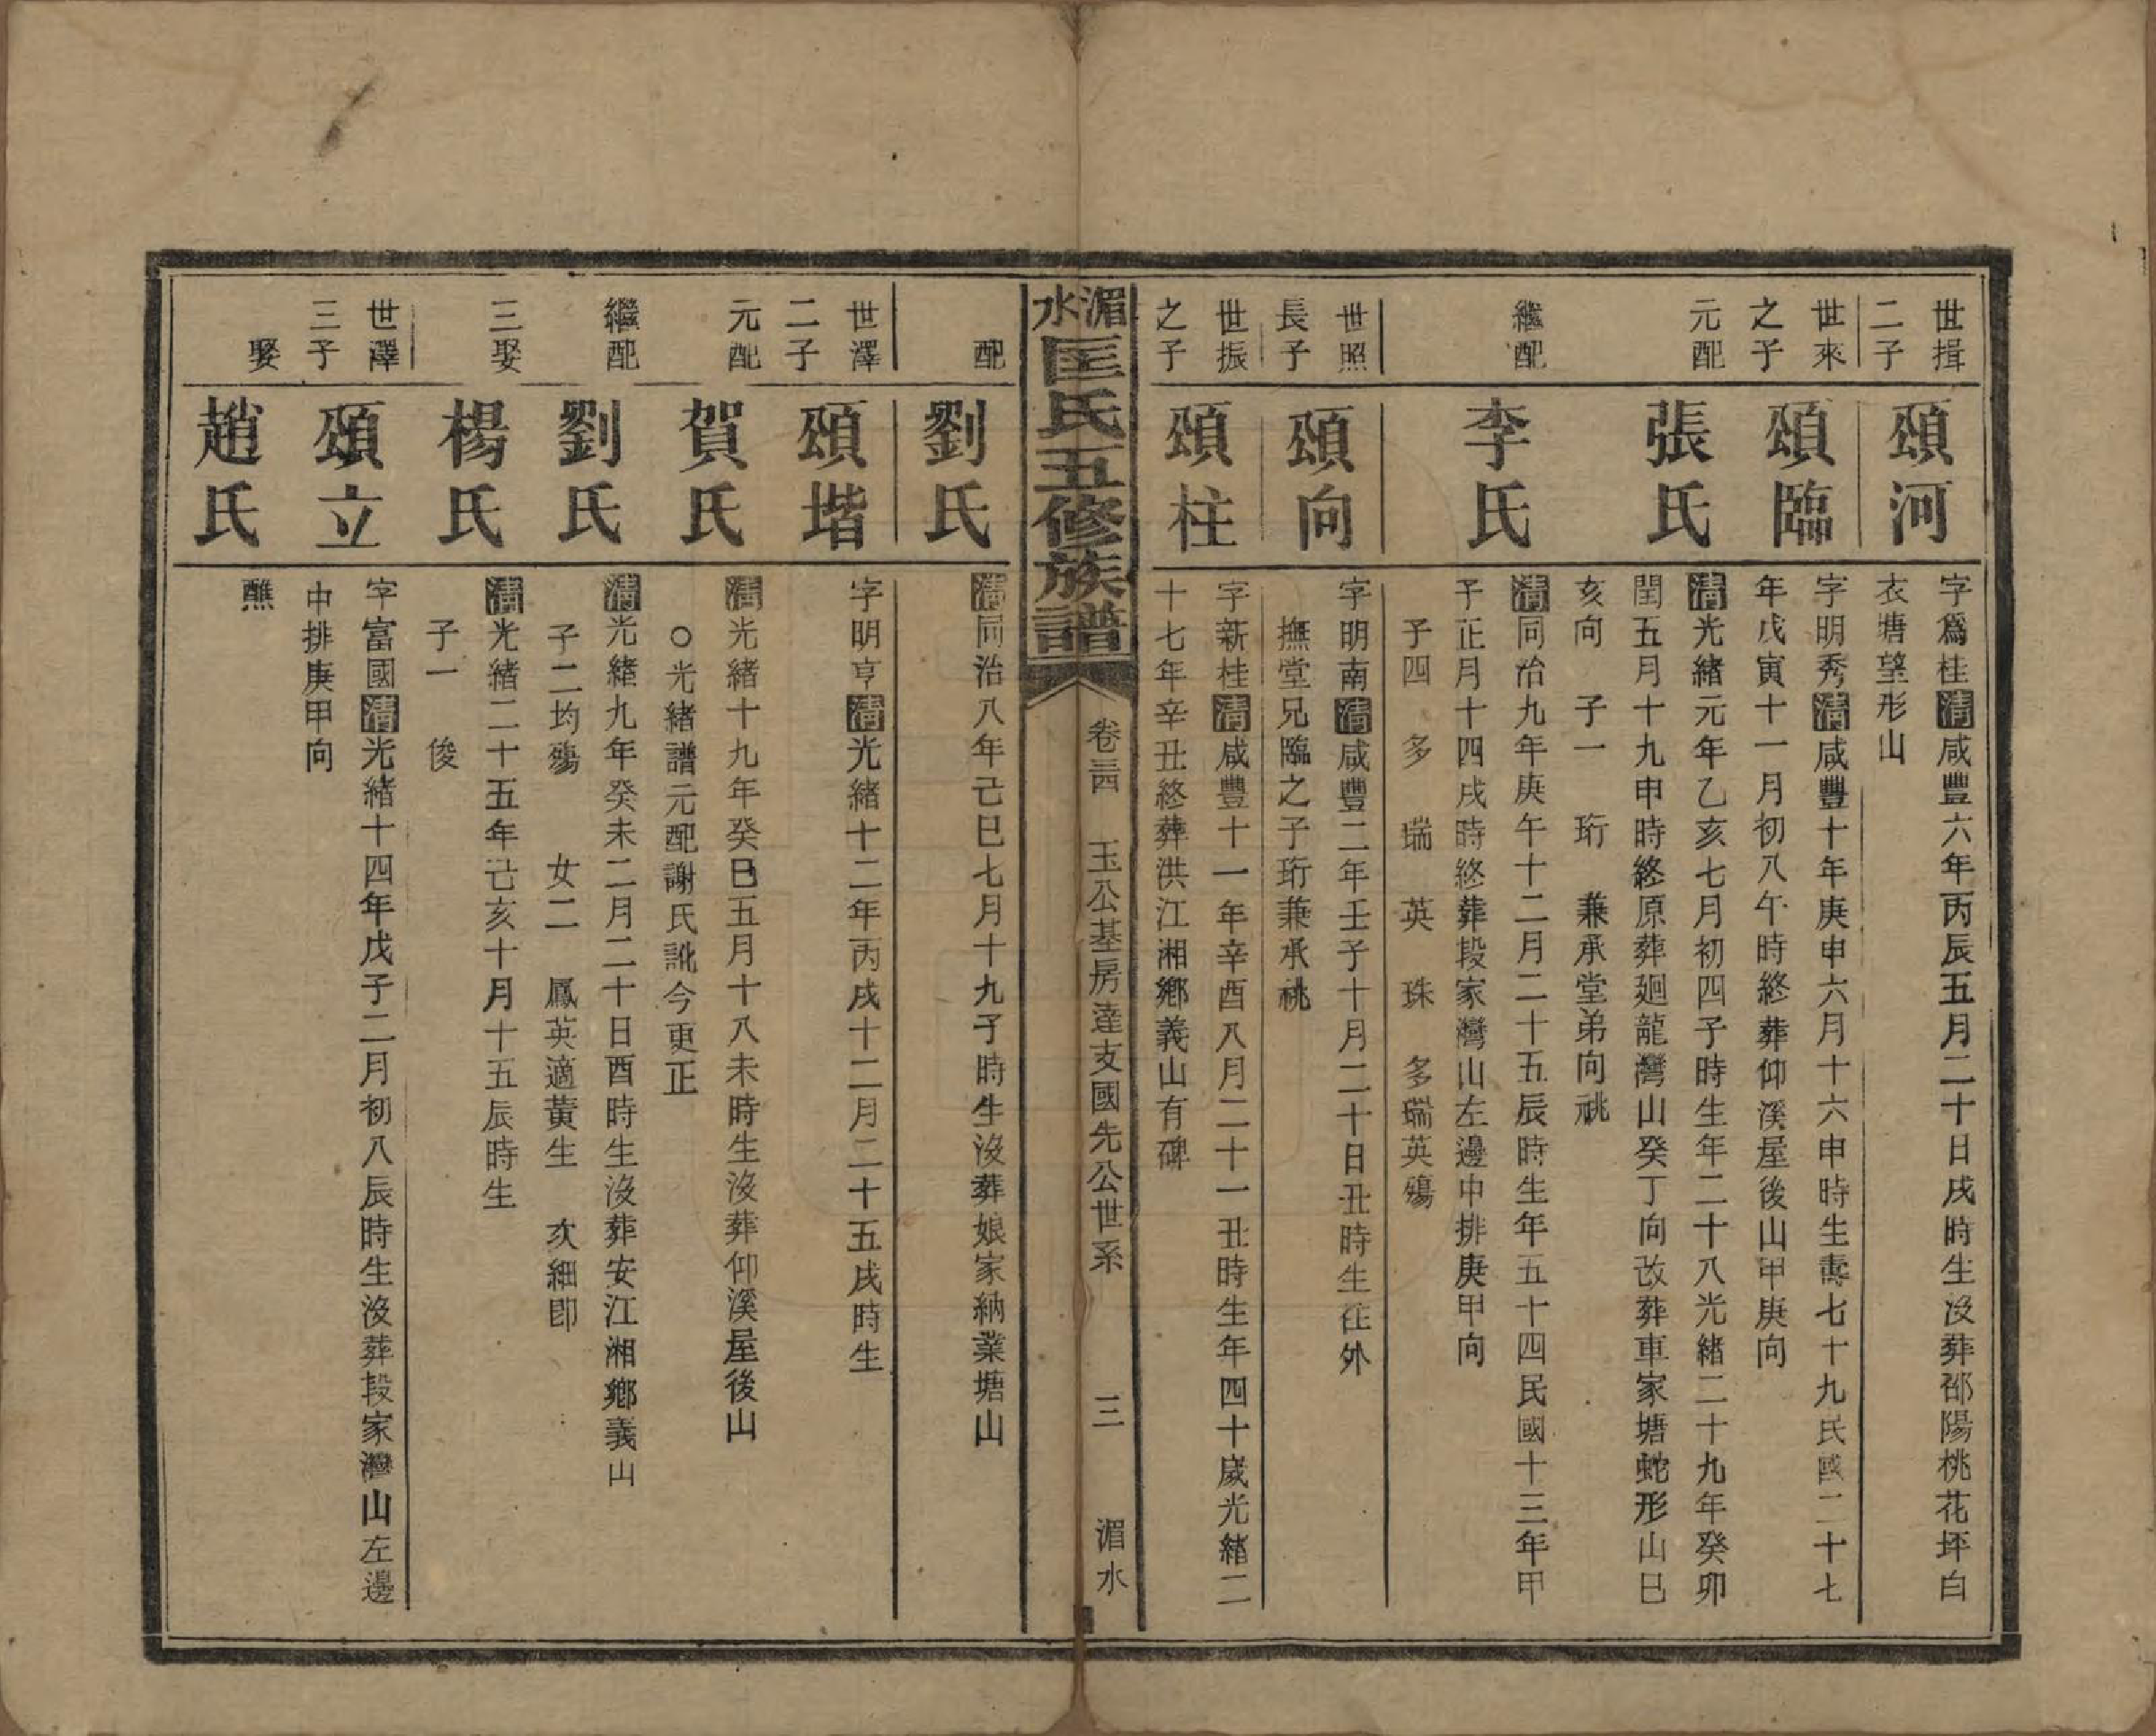 世揖
二子
頌河
字爲桂清咸豐六年丙辰五月二十日戌時生沒葬邵陽桃花坪白
衣塘望形山
世來
之子
頌臨
字明秀清咸豐十年庚申六月十六申時生壽七十九民國二十七
年戊寅十一月初八午時終葬仰溪屋後山甲庚向
元配
張氏
清光緒元年乙亥七月初四子時生年二十八光緒二十九年癸卯
閏五月十九申時終原葬廻龍灣山癸丁向改葬車家塘蛇形山巳
亥向 子一 珩 兼承堂弟向祧
繼配
李氏
清同治九年庚午十二月二十五辰時生年五十四民國十三年甲
子正月十四戌時終葬段家灣山左邊中排庚甲向
子四 多 瑞 英 珠 多瑞英殤
世照
長子
頌向
字明南清咸豐二年壬子十月二十日丑時生往外
撫堂兄臨之子珩兼承祧
世振
之子
頌柱
字新桂清咸豐十一年辛酉八月二十一丑時生年四十歲光緒二
十七年辛丑終葬洪江湘鄉義山有碑
湄水匡氏五修族譜
卷三四 玉公基房達支國先公世系 三 湄水
配
劉氏
清同治八年己巳七月十九子時生沒葬娘家納業塘山
世澤
二子
頌堦
字明亨清光緒十二年丙戌十二月二十五戌時生
元配
賀氏
清光緒十九年癸巳五月十八未時生沒葬仰溪屋後山
○光緒譜元配謝氏訛今更正
繼配
劉氏
清光緒九年癸未二月二十日酉時生沒葬安江湘鄉義山
子二均殤 女二 鳳英適黃生 次細即
三娶
楊氏
清光緒二十五年己亥十月十五辰時生
子一 俊
世澤
三子
頌立
字富國清光緒十四年戊子二月初八辰時生沒葬段家灣山左邊
中排庚甲向
娶
趙氏
醮